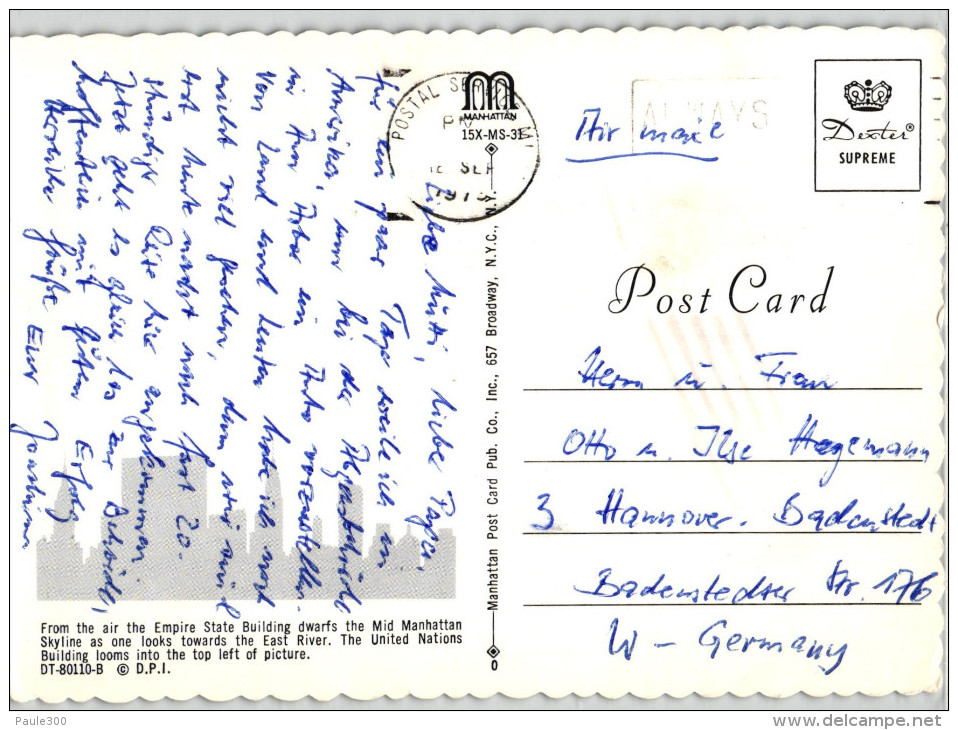 Liebe Mutti, liebe Pappi,
für ein paar Tage weile ich in
Amerika, um bei der
in Ann Arbor ein Auto vorzustellen.
Von Land und Leuten habe ich noch
nicht viel gesehen, denn wir sind
erst heute nacht nach fast 20-
stündiger Reise hier angekommen.
Jetzt geht es gleich los zur
hoffentlich mit gutem Erfolg
Herzliche Grüße Euer Joachim
From the air the Empire State Building dwarfs the Mid Manhattan
Skyline as one looks towards the East River. The United Nations
Building looms into the top left of picture.
DT-80110-B © D.P.I.
POSTAL SE MI
PM
SEP
197
MANHATTAN
15X-MS-31
Manhattan Post Card Pub. Co., Inc., 657 Broadway, N.Y.C., N.Y.
Air mail
ALWAYS
Dexter®
SUPREME
Post Card
Herrn u. Frau
Otto u. Ilse Hagemann
3 Hannover-Badenstedt
Badenstedter Str. 176
W-Germany
Paule300
delcampe.net